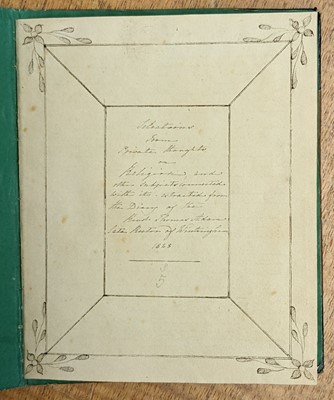 Selections
from
Private Thoughts
on
Religion, and
other subjects connected
with it: extracted from
the Diary of the
Revd. Thomas Adam
late Rector of Wintringham
1828